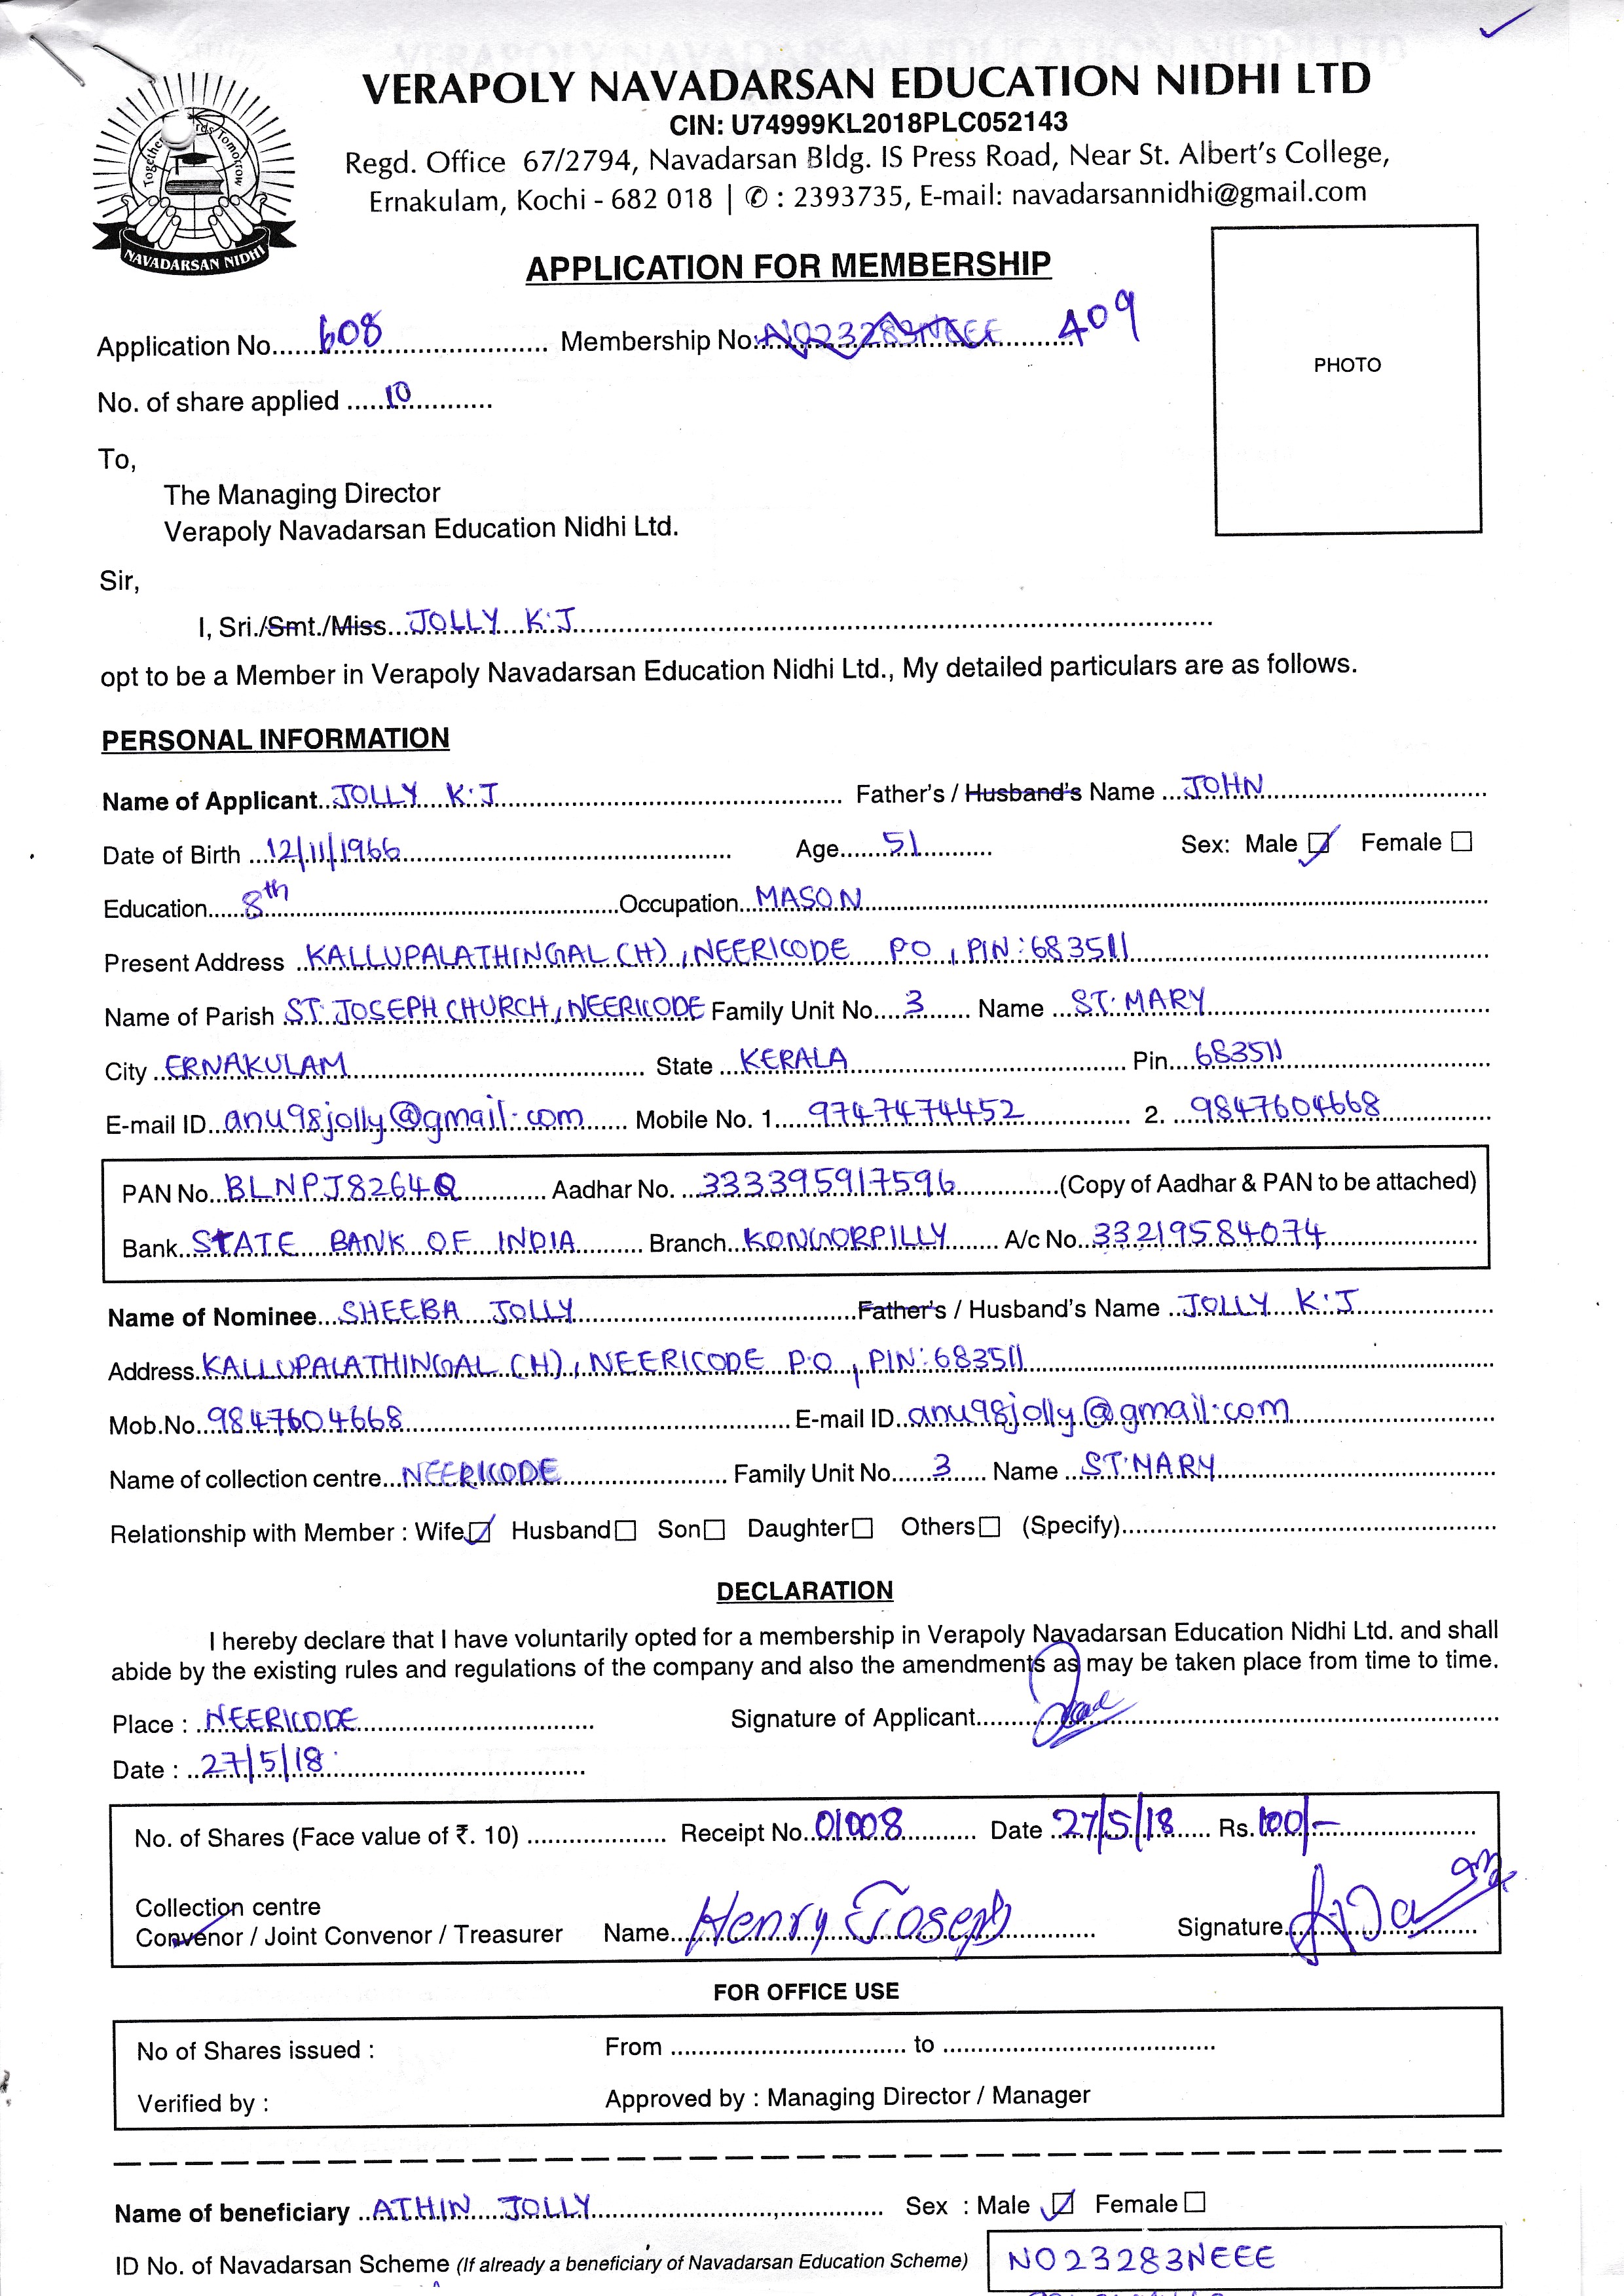 VERAPOLY NAVADARSAN EDUCATION NIDHI LTD
CIN: U74999KL2018PLC052143
Regd. Office 67/2794, Navadarsan Bldg. IS Press Road, Near St. Albert's College,
Ernakulam, Kochi - 682 018 | ✆ : 2393735, E-mail: navadarsannidhi@gmail.com
Together Towards Tomorrow
NAVADARSAN NIDHI
APPLICATION FOR MEMBERSHIP
Application No. 608 Membership No: N023283NEEE 409
PHOTO
No. of share applied 10
To,
The Managing Director
Verapoly Navadarsan Education Nidhi Ltd.
Sir,
I, Sri./Smt./Miss JOLLY K.J
opt to be a Member in Verapoly Navadarsan Education Nidhi Ltd., My detailed particulars are as follows.
PERSONAL INFORMATION
Name of Applicant JOLLY K.J Father's / Husband's Name JOHN
Date of Birth 12/11/1966 Age 51 Sex: Male ☑ Female ☐
Education 8th Occupation MASON
Present Address KALLUPALATHINGAL (H), NEERICODE PO, PIN:683511
Name of Parish ST. JOSEPH CHURCH, NEERICODE Family Unit No. 3 Name ST. MARY
City ERNAKULAM State KERALA Pin 683511
E-mail ID anu98jolly@gmail.com Mobile No. 1 9747474452 2. 9847604668
PAN No. BLNPJ8264Q Aadhar No. 333395917596 (Copy of Aadhar & PAN to be attached)
Bank STATE BANK OF INDIA Branch KONGORPILLY A/c No. 33219584074
Name of Nominee SHEEBA JOLLY Father's / Husband's Name JOLLY K.J
Address KALLUPALATHINGAL (H), NEERICODE P.O, PIN:683511
Mob.No. 9847604668 E-mail ID anu98jolly@gmail.com
Name of collection centre NEERICODE Family Unit No. 3 Name ST. MARY
Relationship with Member : Wife ☑ Husband ☐ Son ☐ Daughter ☐ Others ☐ (Specify)
DECLARATION
I hereby declare that I have voluntarily opted for a membership in Verapoly Navadarsan Education Nidhi Ltd. and shall
abide by the existing rules and regulations of the company and also the amendments as may be taken place from time to time.
Place : NEERICODE Signature of Applicant
Date : 27/5/18
No. of Shares (Face value of ₹. 10) Receipt No. 01008 Date 27/5/18 Rs. 100/-
Collection centre
Convenor / Joint Convenor / Treasurer Name Henry Joseph Signature
FOR OFFICE USE
No of Shares issued : From to
Verified by : Approved by : Managing Director / Manager
Name of beneficiary ATHIN JOLLY Sex : Male ☑ Female ☐
ID No. of Navadarsan Scheme (If already a beneficiary of Navadarsan Education Scheme) N023283NEEE